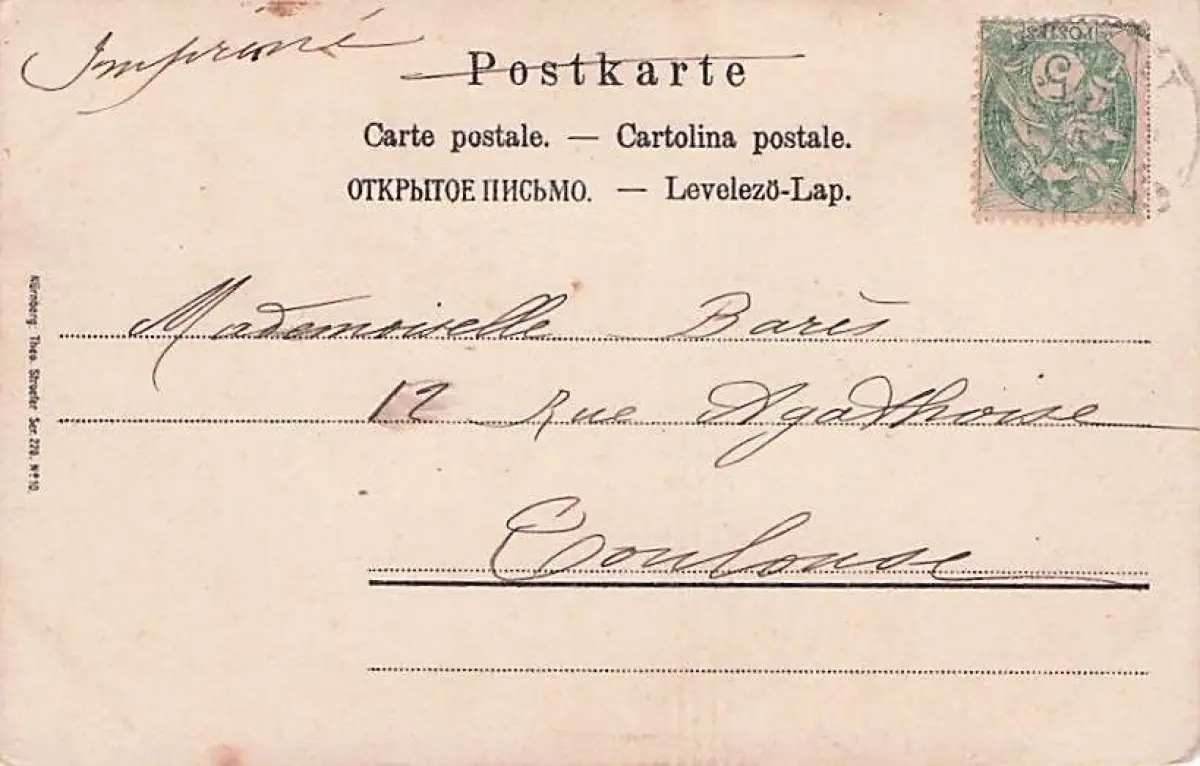 Imprimé
Postkarte
Carte postale. — Cartolina postale.
ОТКРЫТОЕ ПИСЬМО. — Levelező-Lap.
POSTES
5
Mademoiselle Barès
12 Rue Agathoise
Toulouse
Nürnberg. Theo. Stroefer Ser. 276. Nº 10.